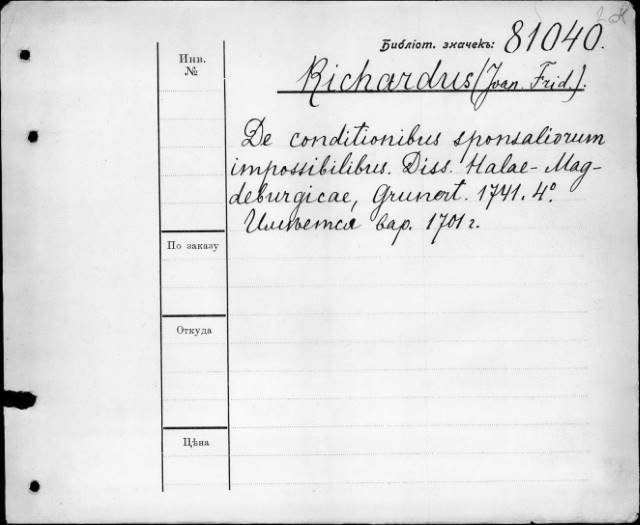 Библіот. значекъ: 81040.
Инв.
№
Richardus (Joan. Frid.).
De conditionibus sponsaliorum
impossibilibus. Diss. Halae-Mag-
deburgicae, Grunert. 1741. 4º.
Имѣется вар. 1701 г.
По заказу
Откуда
Цѣна